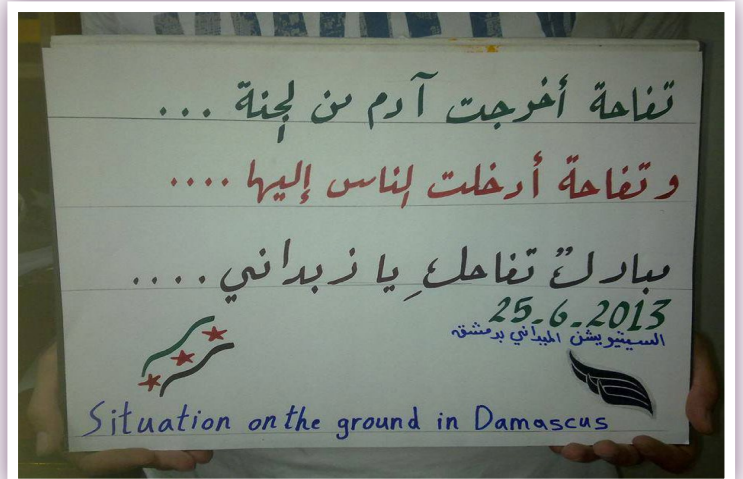 تفاحة أخرجت آدم من الجنة ...
و تفاحة أدخلت الناس إليها ....
مباركٌ تفاحكِ يا زبداني ....
25-6-2013
السيتيويشن الميداني بدمشق
Situation on the ground in Damascus